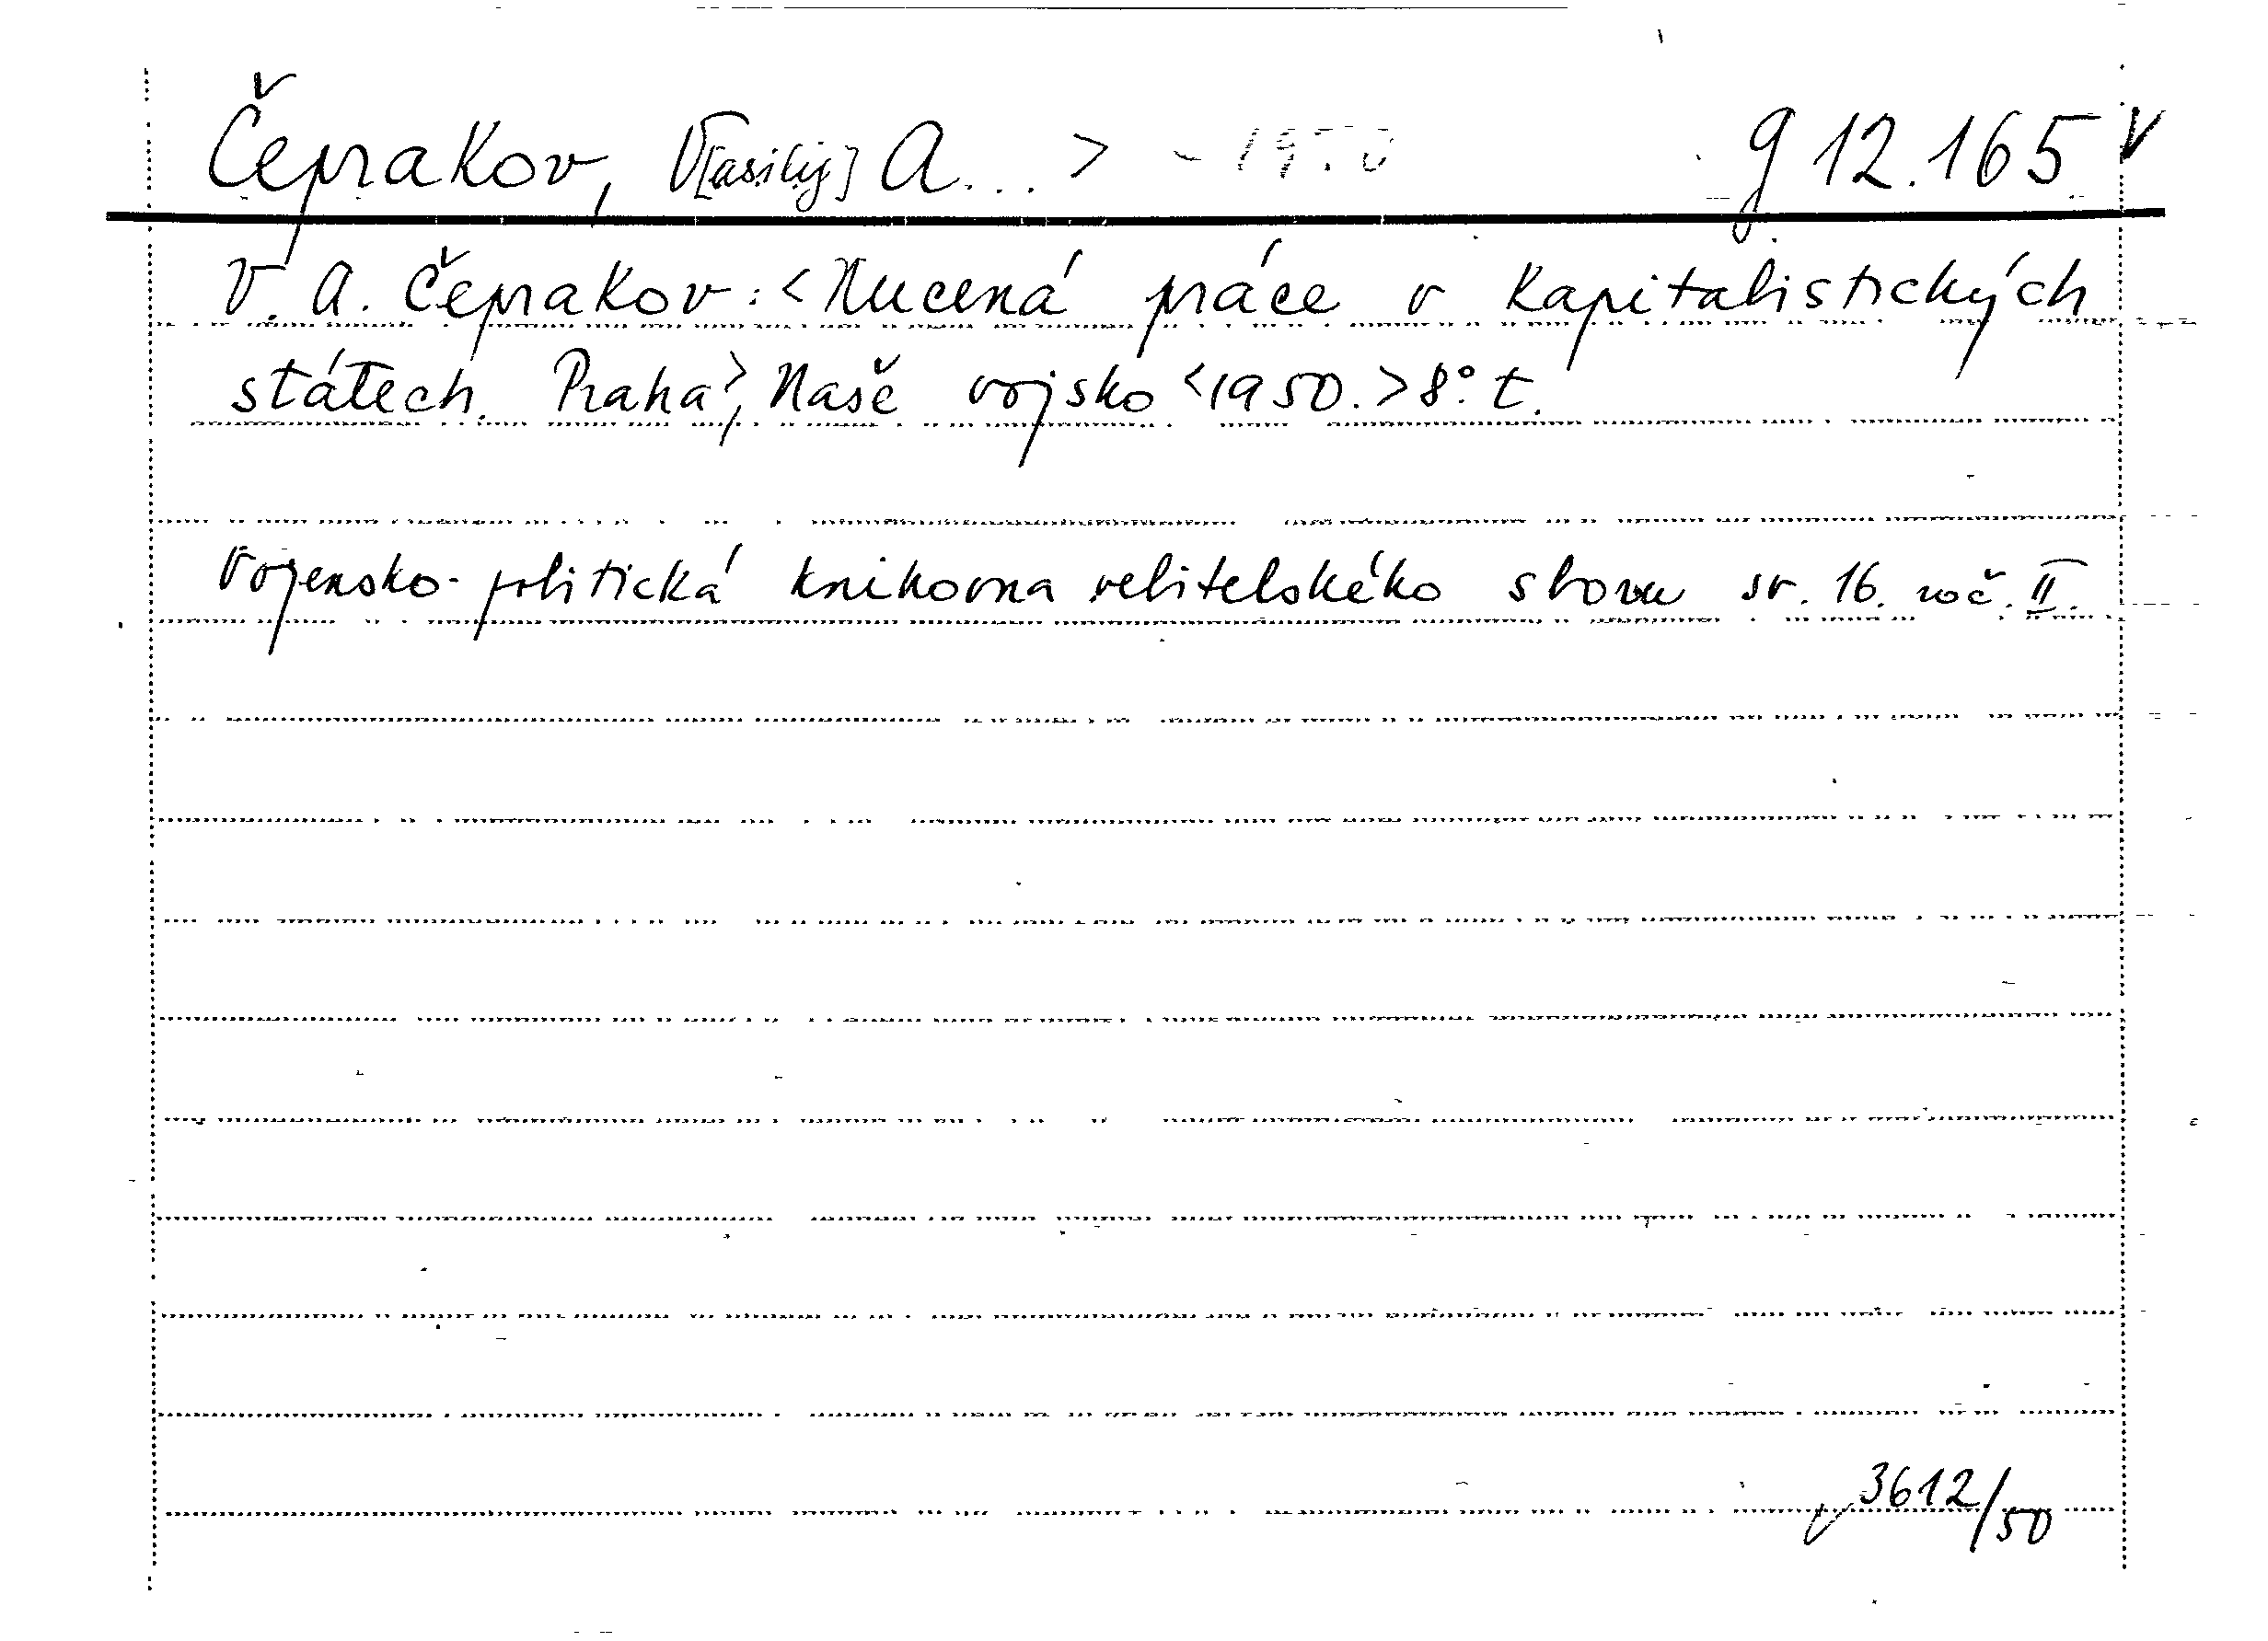 Čeprakov, V[asilij] A... > - 1950 g 12.165 v
V. A. Čeprakov: <Nucená práce v kapitalistických
státech. Praha>, Naše vojsko <1950.> 8°. t.
Vojensko-politická knihovna velitelského sboru sv. 16. roč. II.
v 3612/50